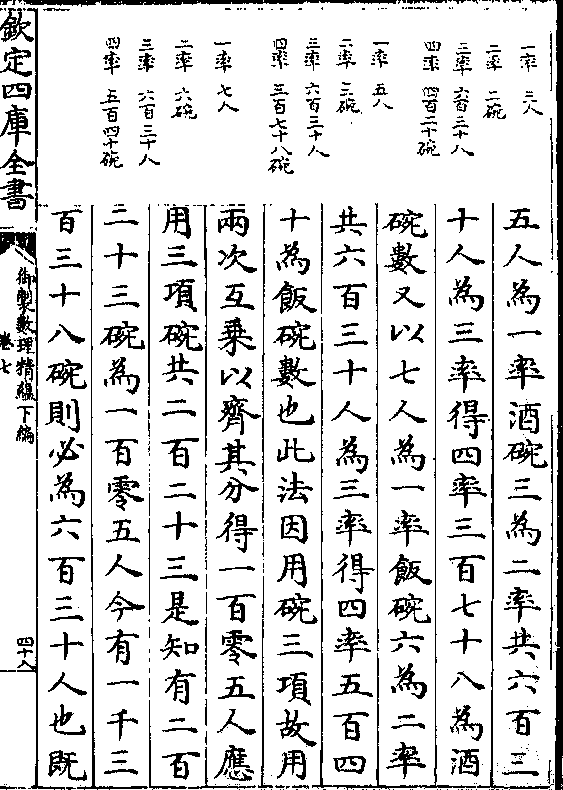 一率 三人
二率 二碗
三率 六百三十人
四率 四百二十碗
一率 五人
二率 三碗
三率 六百三十人
四率 三百七十八碗
一率 七人
二率 六碗
三率 六百三十人
四率 五百四十碗
五人為一率酒碗三為二率共六百三
十人為三率得四率三百七十八為酒
碗數又以七人為一率飯碗六為二率
共六百三十人為三率得四率五百四
十為飯碗數也此法因用碗三項故用
兩次互乗以齊其分得一百零五人應
用三項碗共二百二十三是知有二百
二十三碗為一百零五人今有一千三
百三十八碗則必為六百三十人也既
欽定四庫全書
御製數理精藴下編
卷七
四十八